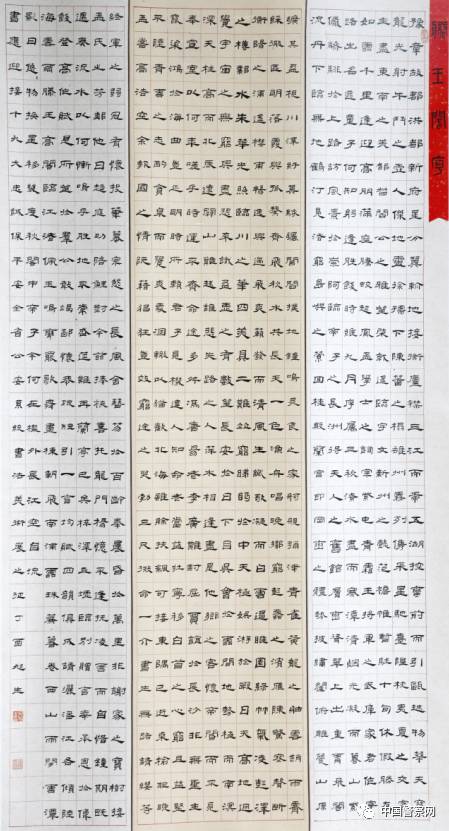 滕王閣序
豫章故郡洪都新府星分翼軫地接衡廬襟三江而帶五湖控蠻荊而引甌越物華天寶
龍光射牛斗之墟人傑地靈徐孺下陳蕃之榻雄州霧列俊采星馳臺隍枕夷夏之交賓
主盡東南之美都督閻公之雅望棨戟遙臨宇文新州之懿範襜帷暫駐十旬休暇勝友
如雲千里逢迎高朋滿座騰蛟起鳳孟學士之詞宗紫電青霜王將軍之武庫家君作宰
路出名區童子何知躬逢勝餞時維九月序屬三秋潦水盡而寒潭清煙光凝而暮山紫儼驂騑
於上路訪風景於崇阿臨帝子之長洲得天人之舊館層巒聳翠上出重霄飛閣
流丹下臨無地鶴汀鳧渚窮島嶼之縈迴桂殿蘭宮即岡巒之體勢披繡闥俯雕甍山原
曠其盈視川澤紆其駭矚閭閻撲地鐘鳴鼎食之家舸艦彌津青雀黃龍之舳雲銷雨霽
彩徹區明落霞與孤鶩齊飛秋水共長天一色漁舟唱晚響窮彭蠡之濱雁陣驚寒聲斷
衡陽之浦遙襟甫暢逸興遄飛爽籟發而清風生纖歌凝而白雲遏睢園綠竹氣凌彭澤
之樽鄴水朱華光照臨川之筆四美具二難並窮睇眄於中天極娛遊於暇日天高地迥
覺宇宙之無窮興盡悲來識盈虛之有數望長安於日下目吳會於雲間地勢極而南溟
深天柱高而北辰遠關山難越誰悲失路之人萍水相逢盡是他鄉之客懷帝閽而不見
奉宣室以何年嗟乎時運不齊命途多舛馮唐易老李廣難封屈賈誼於長沙非無聖主
竄梁鴻於海曲豈乏明時所賴君子見機達人知命老當益壯寧移白首之心窮且益堅不
墜青雲之志酌貪泉而覺爽處涸轍以猶歡北海雖賒扶搖可接東隅已逝桑榆非晚
孟嘗高潔空餘報國之情阮籍猖狂豈效窮途之哭勃三尺微命一介書生無路請纓等
終軍之弱冠有懷投筆慕宗愨之長風舍簪笏於百齡奉晨昏於萬里非謝家之寶樹接
孟氏之芳鄰他日趨庭叨陪鯉對今茲捧袂喜托龍門楊意不逢撫凌雲而自惜鍾期既遇
奏流水以何慚嗚呼勝地不常盛筵難再蘭亭已矣梓澤丘墟臨別贈言幸承恩於偉
餞登高作賦是所望於群公敢竭鄙懷恭疏短引一言均賦四韻俱成請灑潘江各傾陸
海云爾滕王高閣臨江渚佩玉鳴鸞罷歌舞畫棟朝飛南浦雲珠簾暮卷西山雨閒雲潭
影日悠悠物換星移幾度秋閣中帝子今何在檻外長江空自流
書應迎接十九大忠誠保平安全省公安系統書法美術展之征丁酉旭生
中国警察网